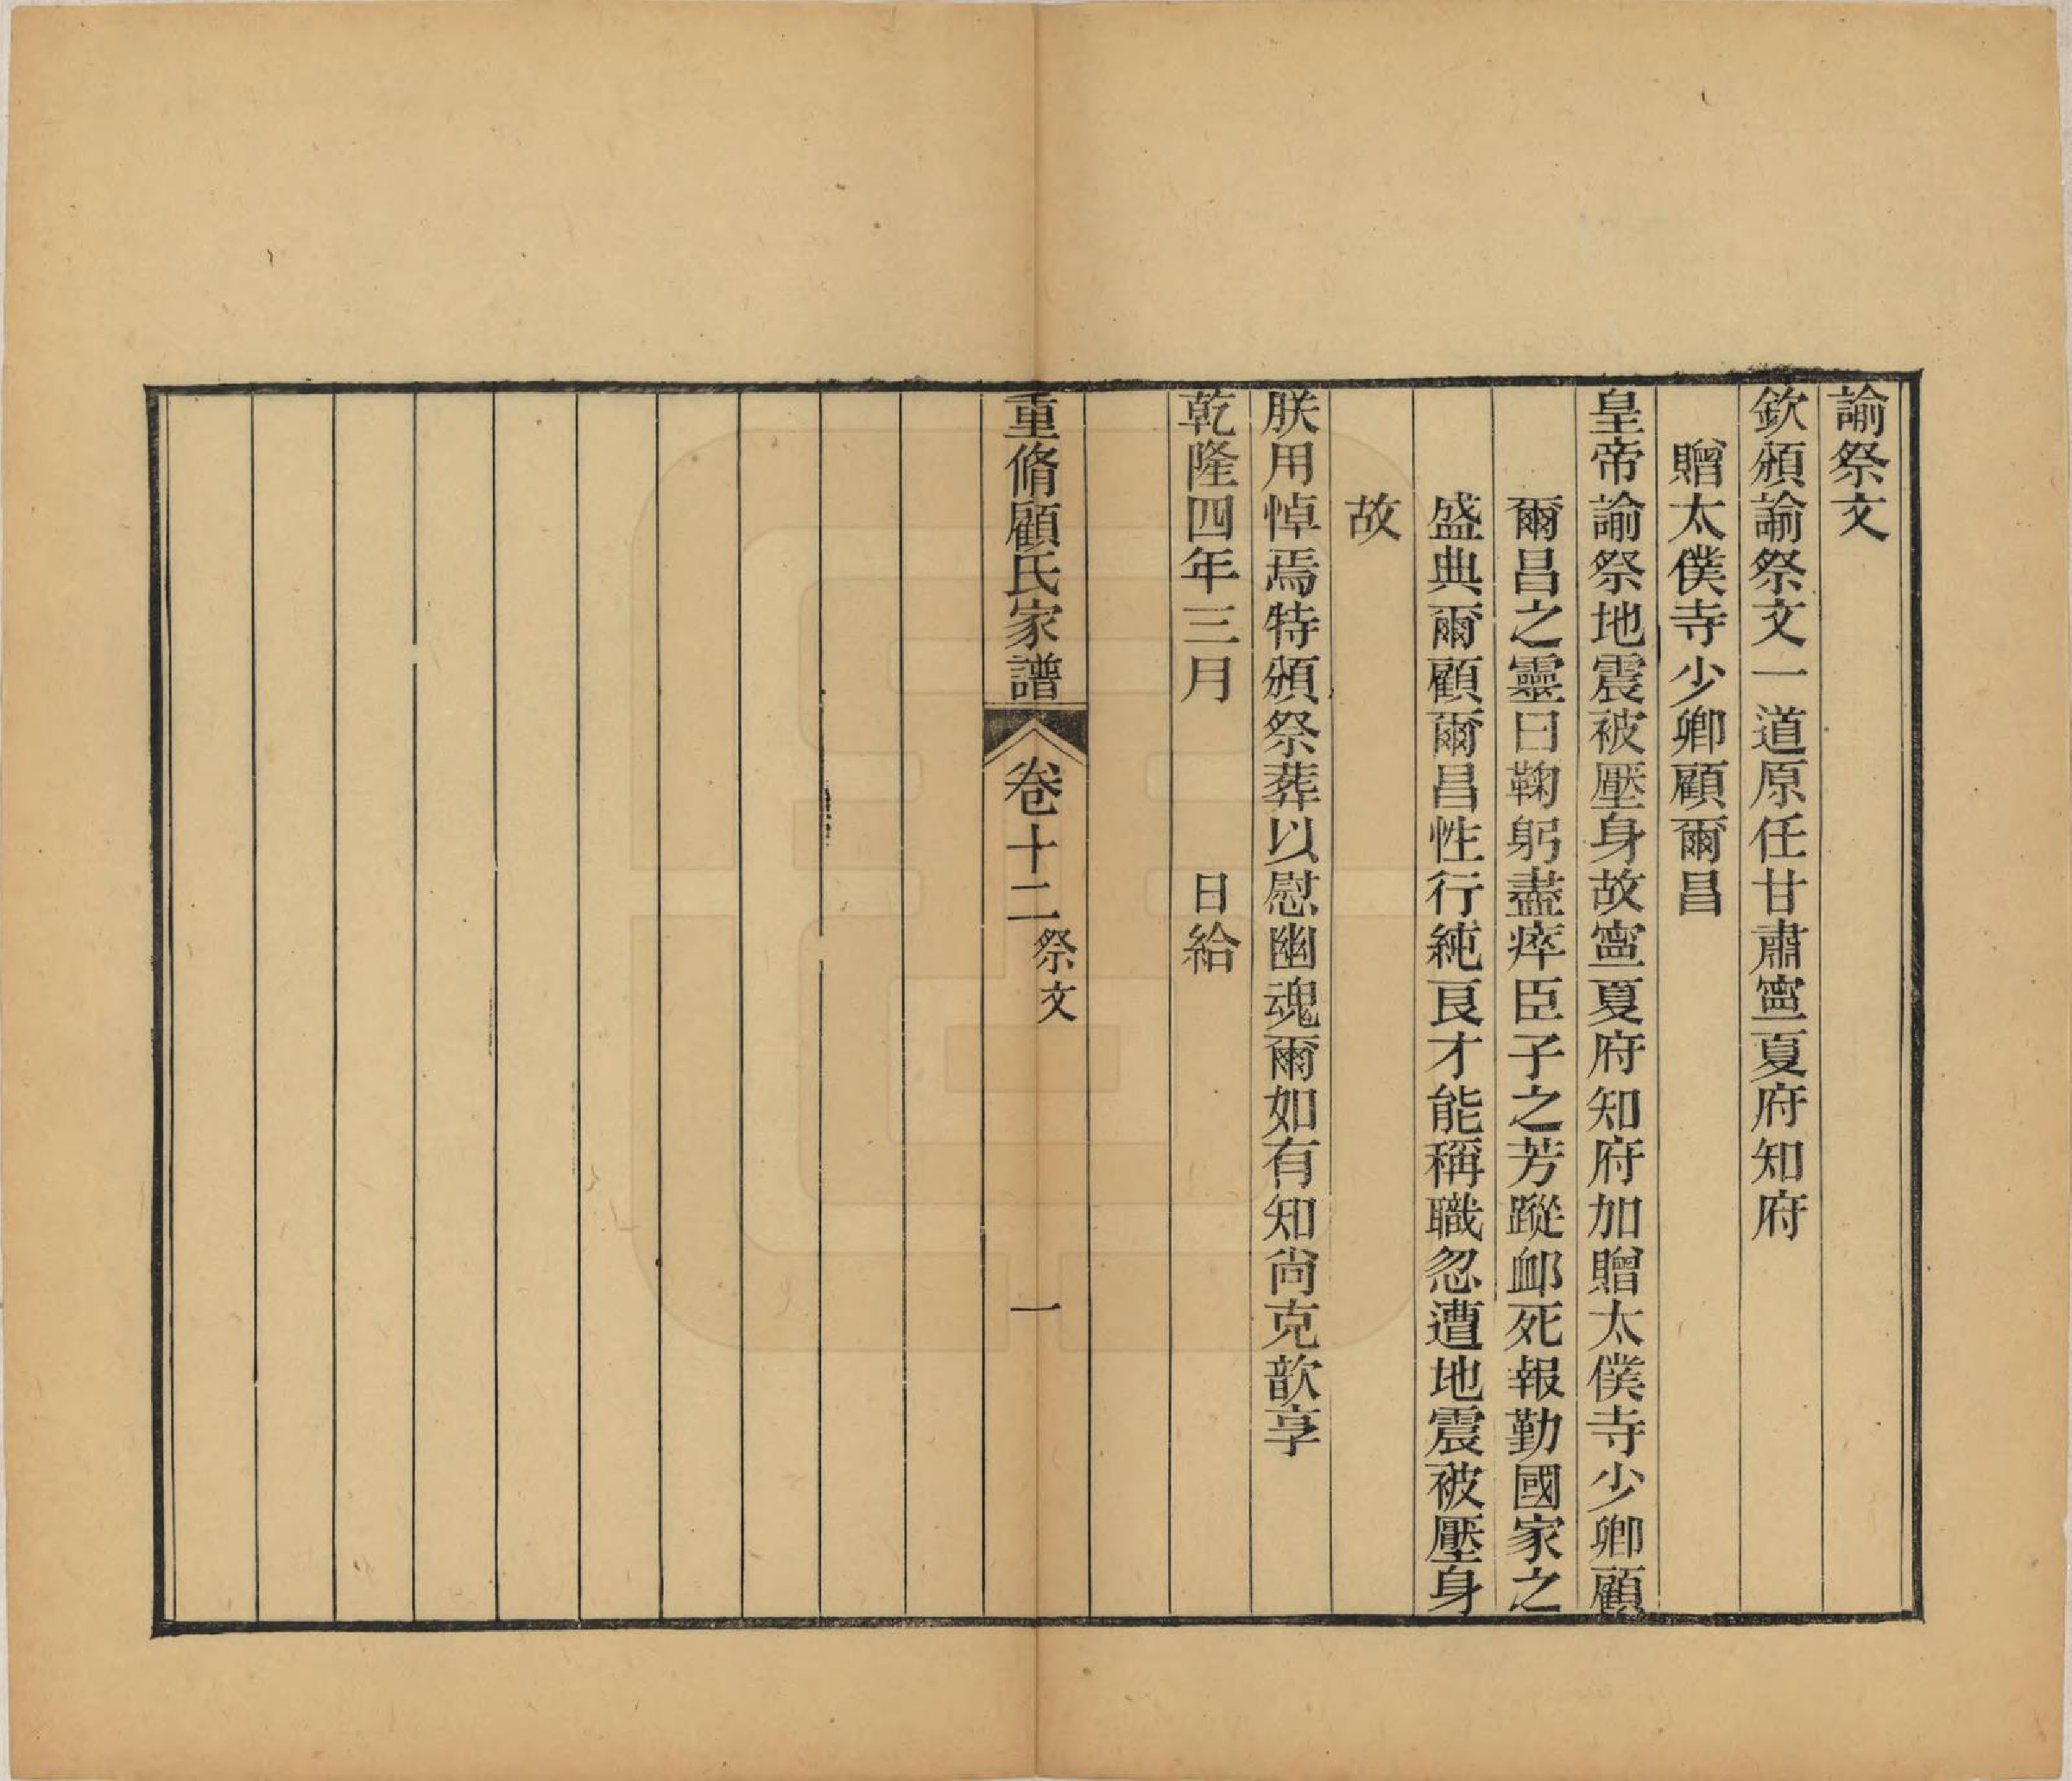 諭祭文
欽頒諭祭文一道原任甘肅寧夏府知府
贈太僕寺少卿顧爾昌
皇帝諭祭地震被壓身故寧夏府知府加贈太僕寺少卿顧
爾昌之靈曰鞠躬盡瘁臣子之芳蹤卹死報勤國家之
盛典爾顧爾昌性行純良才能稱職忽遭地震被壓身
故
朕用悼焉特頒祭葬以慰幽魂爾如有知尚克歆享
乾隆四年三月 日給
重脩顧氏家譜 卷十二 祭文 一